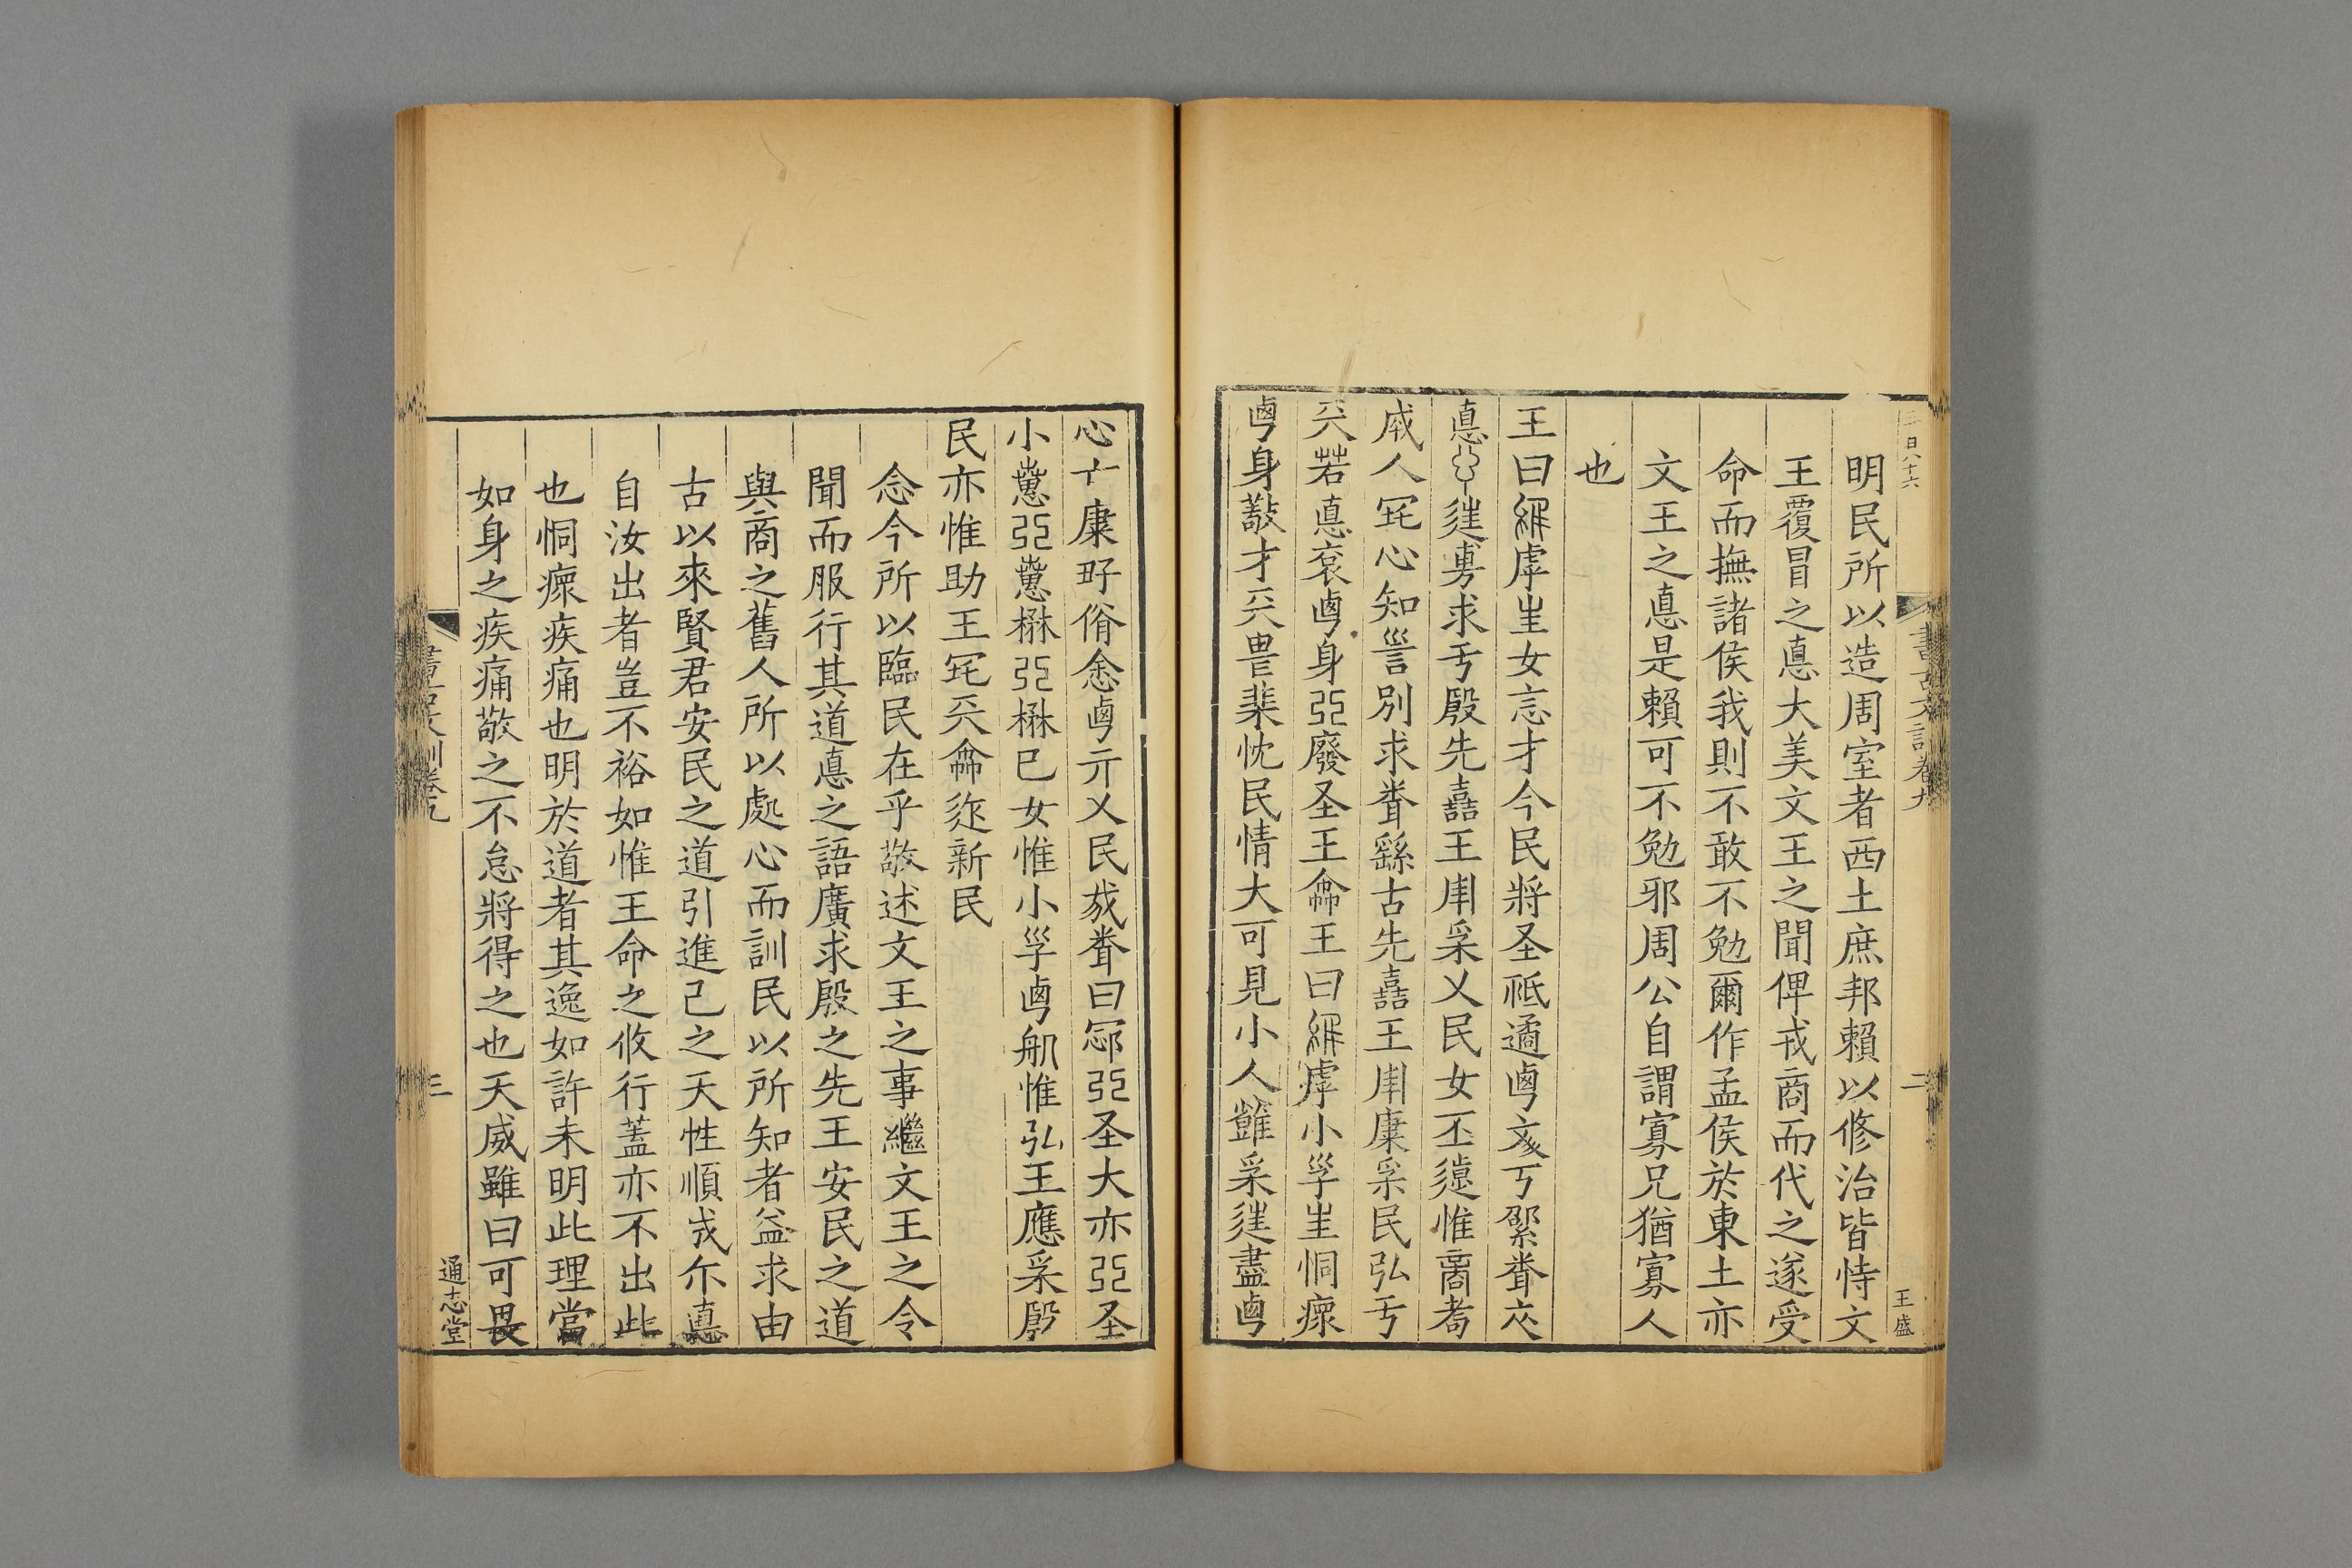 明民所以造周室者西土庶邦賴以修治皆恃文
王覆冒之悳大美文王之聞俾戎商而代之遂受
命而撫諸侯我則不敢不勉爾作孟侯於東土亦
文王之悳是賴可不勉邪周公自謂寡兄猶寡人
也
王曰虖女言才今民將圣祗遹亥丂
悳求亏殷先嚞王用采乂民女丕惟耇
人宅心知別求古先嚞王用康采民弘亏
兲若悳身弜廢圣王命王曰虖小恫瘝
身才兲畏棐忱民情大可見小人采盡
心亡康好念亓乂民曰怨弜圣大亦弜圣
小弜楙弜楙已女惟小服惟弘王應采殷
民亦惟助王宅兲新民
念今所以臨民在乎敬述文王之事繼文王之令
聞而服行其道悳之語廣求殷之先王安民之道
與商之舊人所以處心而訓民以所知者益求由
古以來賢君安民之道引進己之天性順戎尒悳
自汝出者豈不裕如惟王命之攸行蓋亦不出此
也恫瘝疾痛也明於道者其逸如許未明此理當
如身之疾痛敬之不怠將得之也天威雖曰可畏
書古文訓卷九
二
王盛
三
通志堂